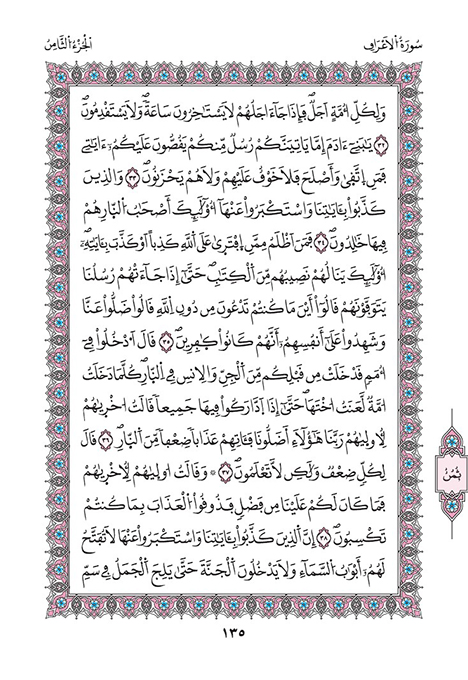 سُورَةُ الْأَعْرَافِ
الْجُزْءُ الثَّامِنُ
وَلِكُلِّ أُمَّةٍ أَجَلٌ فَإِذَا جَآءَ اجَلُهُمْ لَا يَسْتَاخِرُونَ سَاعَةً وَلَا يَسْتَقْدِمُونَ
٣٢ يَٰبَنِےٓ ءَادَمَ إِمَّا يَاتِيَنَّكُمْ رُسُلٌ مِّنكُمْ يَقُصُّونَ عَلَيْكُمُۥٓ ءَايَٰتِے
فَمَنِ اِتَّقَىٰ وَأَصْلَحَ فَلَا خَوْفٌ عَلَيْهِمْ وَلَا هُمْ يَحْزَنُونَ ٣٣ وَالذِينَ
كَذَّبُواْ بِـَٔايَٰتِنَا وَاسْتَكْبَرُواْ عَنْهَآ أُوْلَٰٓئِكَ أَصْحَٰبُ النّ۪ارِ هُمْ
فِيهَا خَٰلِدُونَ ٣٤ فَمَنَ اَظْلَمُ مِمَّنِ اِفْتَر۪ىٰ عَلَى اَللَّهِ كَذِباً اَوْ كَذَّبَ بِـَٔايَٰتِهِۦٓ
أُوْلَٰٓئِكَ يَنَالُهُمْ نَصِيبُهُم مِّنَ اَلْكِتَٰبِ حَتَّىٰٓ إِذَا جَآءَتْهُمْ رُسُلُنَا
يَتَوَفَّوْنَهُمْ قَالُوٓاْ أَيْنَ مَا كُنتُمْ تَدْعُونَ مِن دُونِ اِللَّهِ قَالُواْ ضَلُّواْ عَنَّا
وَشَهِدُواْ عَلَىٰٓ أَنفُسِهِمُۥٓ أَنَّهُمْ كَانُواْ كٰ۪فِرِينَ ٣٥ قَالَ اَدْخُلُواْ فِےٓ
أُمَمٍ قَدْ خَلَتْ مِن قَبْلِكُم مِّنَ اَلْجِنِّ وَالِانسِ فِے اِلنّ۪ارِ كُلَّمَا دَخَلَتُ
امَّةٌ لَّعَنَتُ اخْتَهَا حَتَّىٰٓ إِذَا اَدَّارَكُواْ فِيهَا جَمِيعاً قَالَتُ اخْر۪يٰهُمْ
لِأُولَيٰهُمْ رَبَّنَا هَٰٓؤُلَآءِ اَضَلُّونَا فَـَٔاتِهِمْ عَذَاباً ضِعْفاً مِّنَ اَلنّ۪ارِ ٣٦ قَالَ
لِكُلٍّ ضِعْفٌ وَلَٰكِن لَّا تَعْلَمُونَ ٣٧ وَقَالَتُ اولَيٰهُمْ لِأُخْر۪يٰهُمْ
فَمَا كَانَ لَكُمْ عَلَيْنَا مِن فَضْلٍ فَذُوقُواْ الْعَذَابَ بِمَا كُنتُمْ
تَكْسِبُونَ ٣٨ إِنَّ اَلذِينَ كَذَّبُواْ بِـَٔايَٰتِنَا وَاسْتَكْبَرُواْ عَنْهَا لَا تُفَتَّحُ
لَهُمُۥٓ أَبْوَٰبُ السَّمَآءِ وَلَا يَدْخُلُونَ اَلْجَنَّةَ حَتَّىٰ يَلِجَ اَلْجَمَلُ فِے سَمِّ
ثُمُنُ
١٣٥